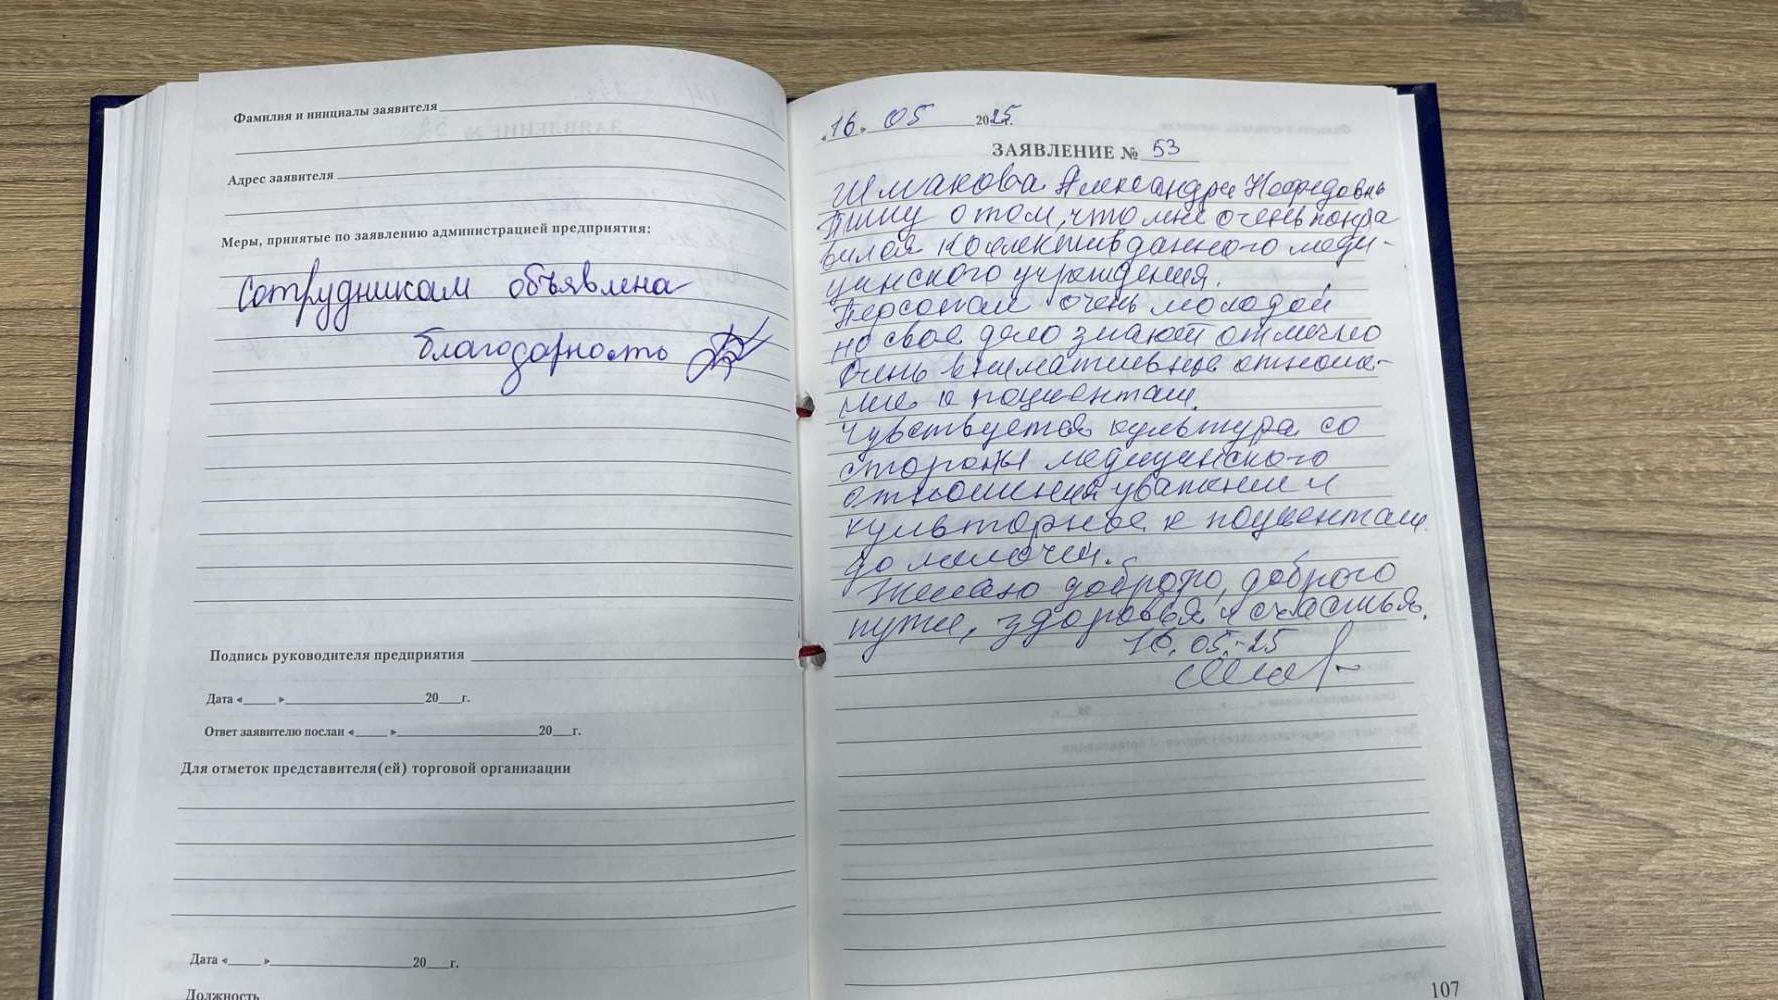 Фамилия и инициалы заявителя
Адрес заявителя
Меры, принятые по заявлению администрацией предприятия:
Сотрудникам объявлена
благодарность
Подпись руководителя предприятия
Дата «____» 20__г.
Ответ заявителю послан «____» 20__г.
Для отметок представителя(ей) торговой организации
Дата «____» 20__г.
Должность
"16" 05 2025г.
ЗАЯВЛЕНИЕ № 53
Шмакова Александра
Пишу о том, что мне очень понра
вился коллектив данного меди-
цинского учреждения.
Персонал очень молодой
но свое дело знают отлично
Очень внимательное отноше-
ние к пациентам.
Чувствуется культура со
стороны медицинского
отношения уважение и
культурное к пациентам
до мелочей.
Желаю доброго, доброго
пути, здоровья и счастья.
16.05.-25
107